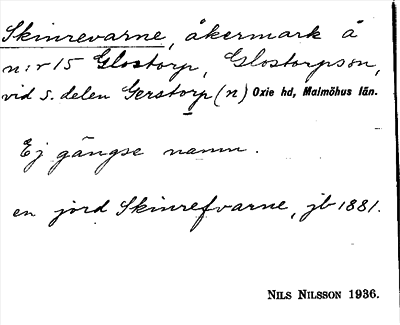 Skinrevarne, åkermark å
n:r 15 Glostorp, Glostorpsön,
vid S. delen Gerstorp (n) Oxie hd, Malmöhus län.
Ej gängse namn.
en jord Skinrefvarne, jb 1881.
NILS NILSSON 1936.